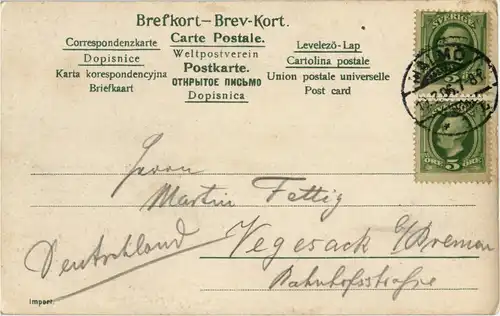 Brefkort–Brev-Kort.
Correspondenzkarte
Dopisnice
Karta korespondencyjna
Briefkaart
Carte Postale.
Weltpostverein
Postkarte.
ОТКРЫТОЕ ПИСЬМО
Dopisnica
Levelező-Lap
Cartolina postale
Union postale universelle
Post card
SVERIGE
MALMÖ
5
ÖRE 5 ÖRE
Herrn
Martin Fettig
Deutschland
Vegesack b/Bremen
Bahnhofsstraße
Import.